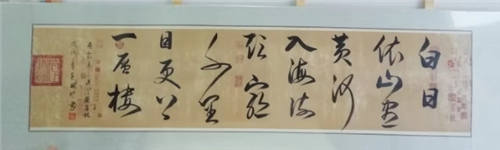 白日
依山盡
黄河
入海流
欲窮
千里
目更上
一層樓